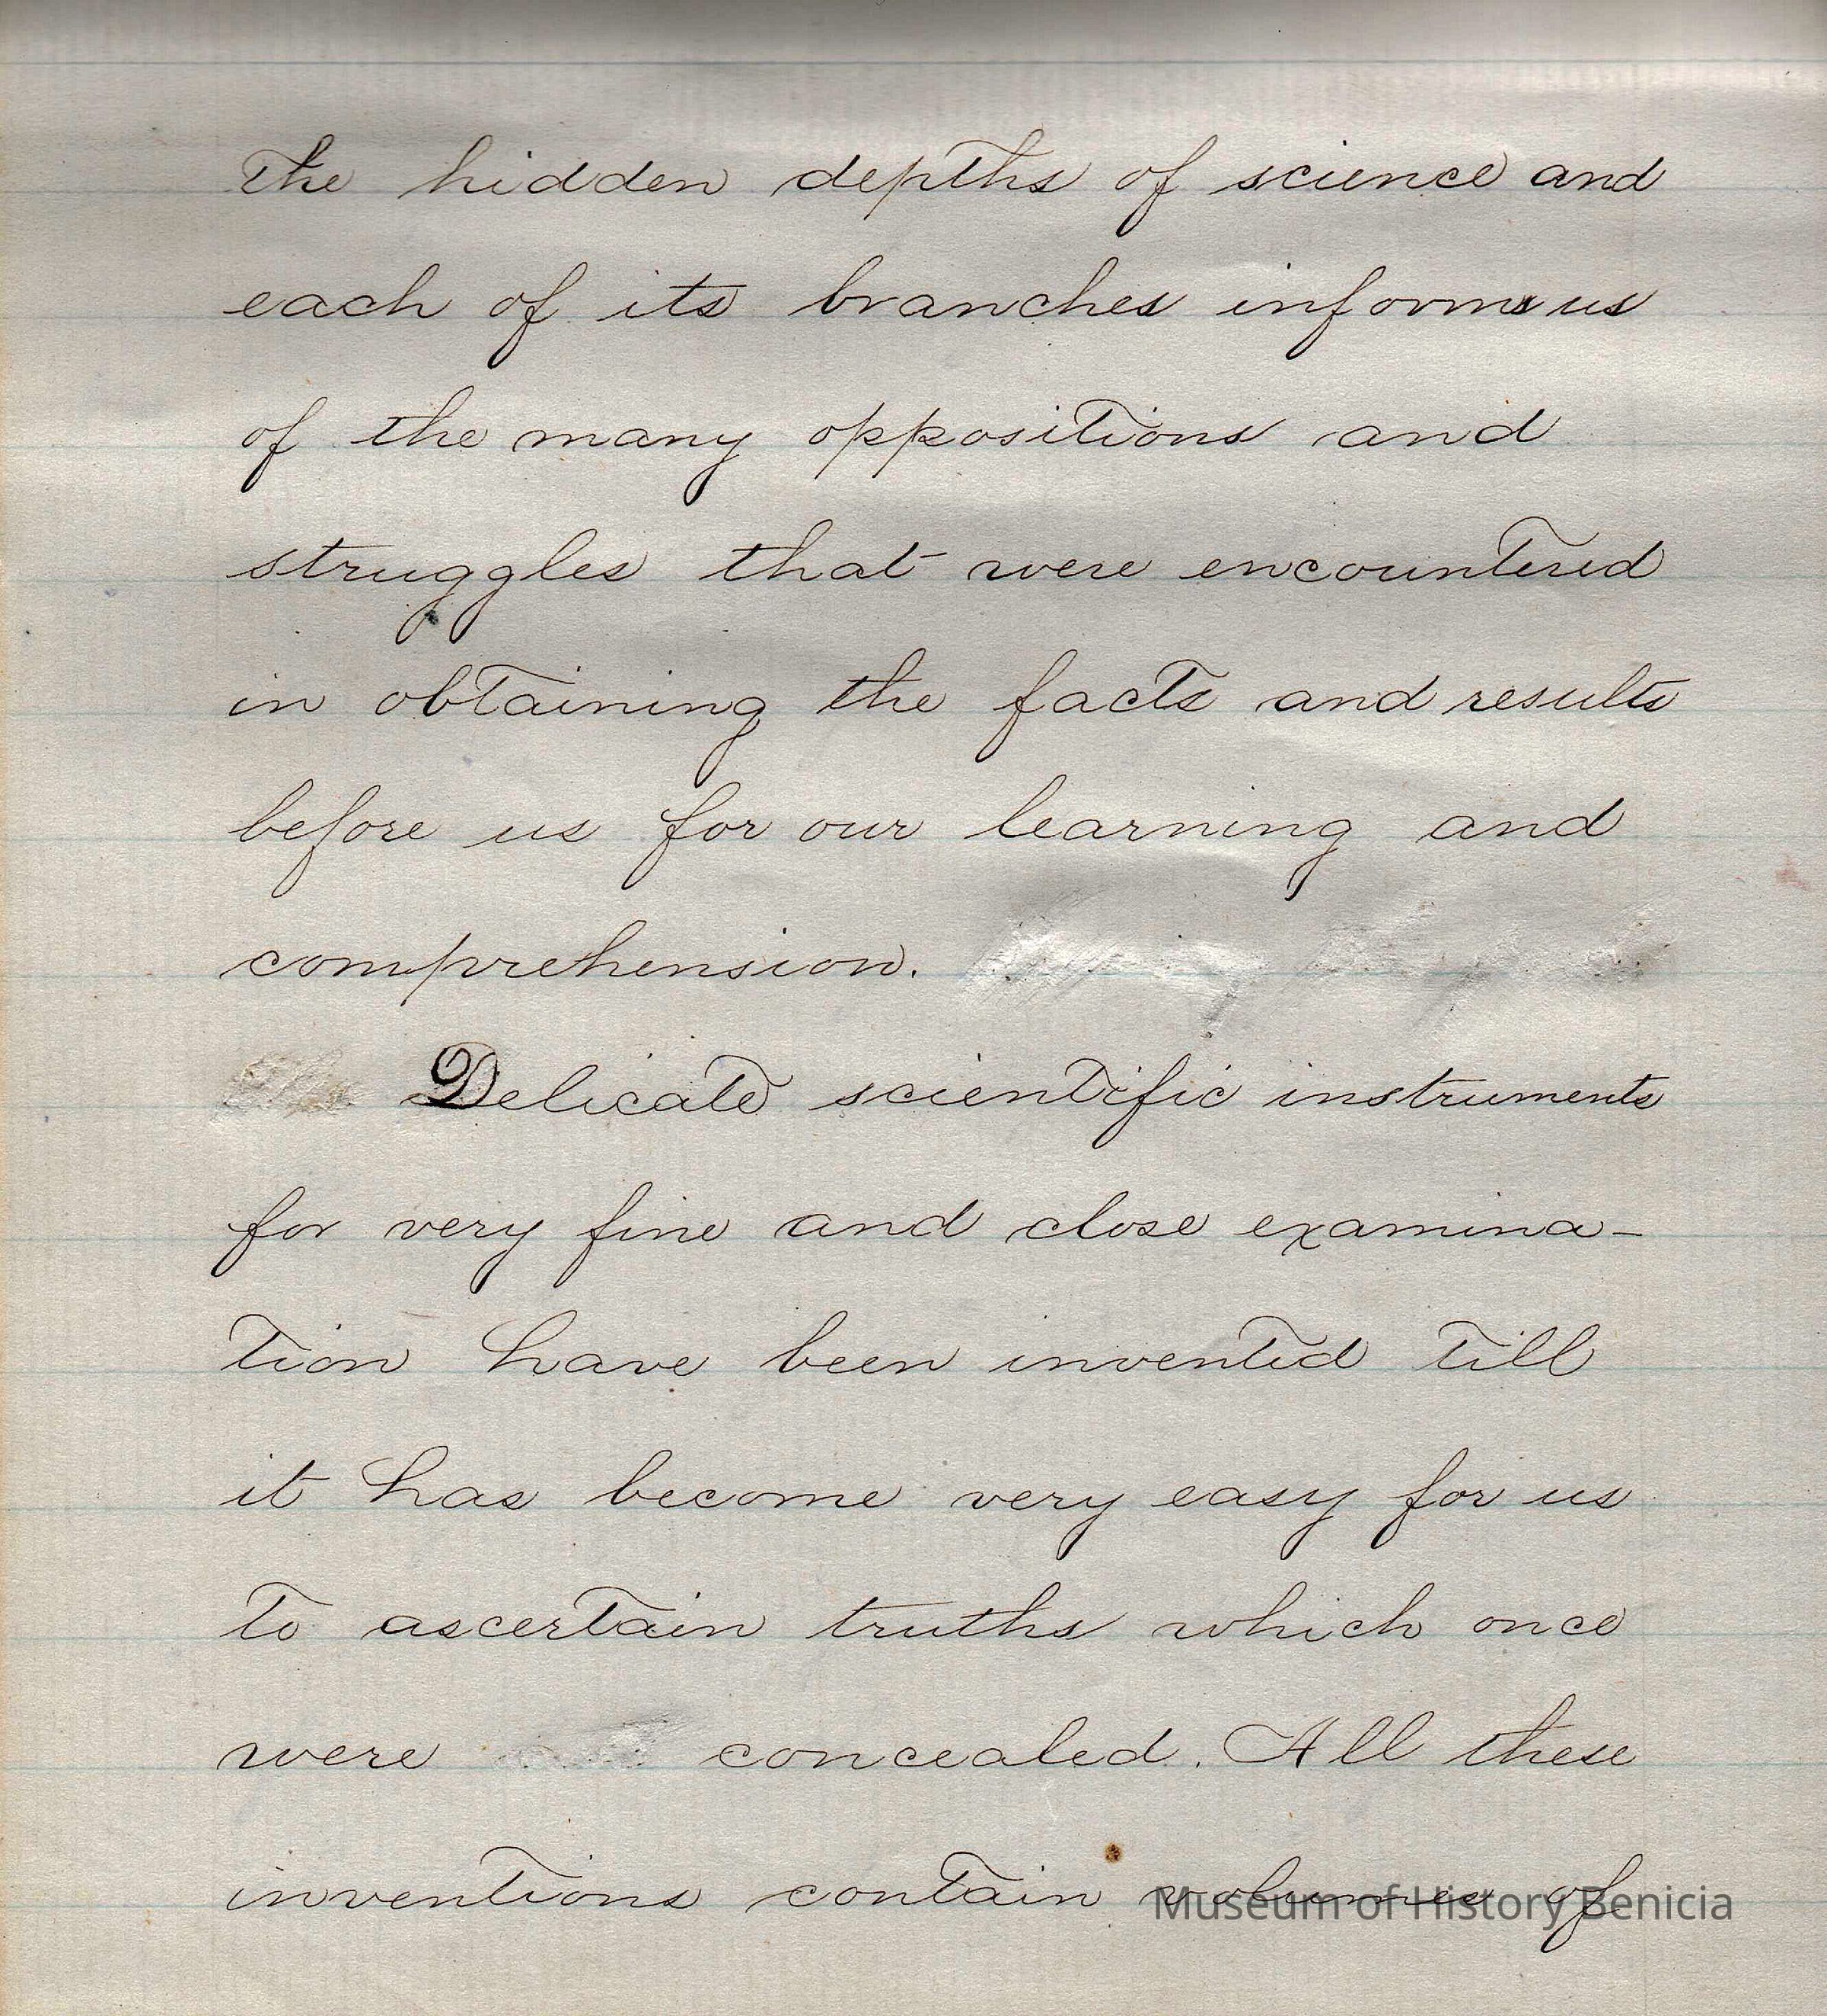 The hidden depths of science and
each of its branches informs us
of the many oppositions and
struggles that were encountered
in obtaining the facts and results
before us for our learning and
comprehension.
Delicate scientific instruments
for very fine and close examina-
tion have been invented till
it has become very easy for us
to ascertain truths which once
were concealed. All these
inventions contain volumes of
Museum of History Benicia